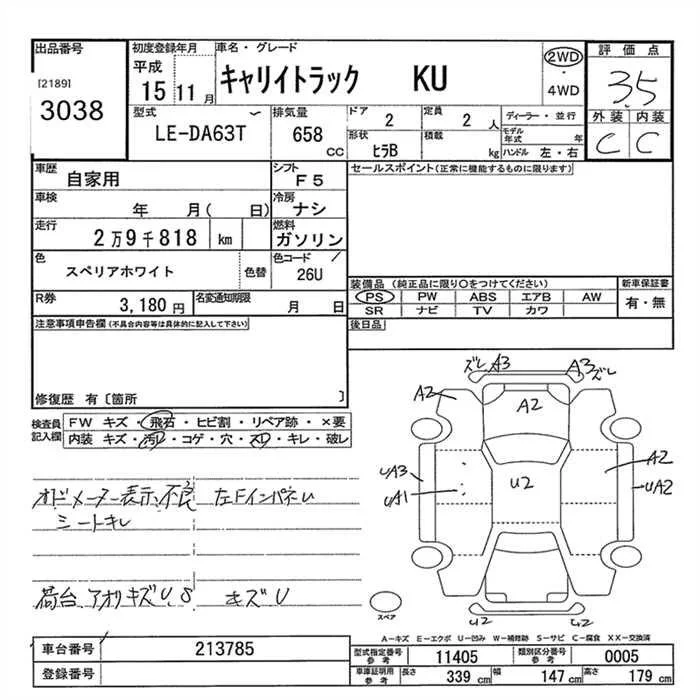 出品番号
[2189]
3038
初度登録年月
平成
15 11 月
車名・グレード
キャリイトラック KU
2WD
・
4WD
評価点
3.5
外装 内装
C C
型式
LE-DA63T
排気量
658
CC
ドア
2
定員
2 人
形状
ヒラB
積載
kg
ディーラー・並行
モデル
年式 年
ハンドル 左・右
車歴
自家用
シフト
F5
車検
年 月( 日)
冷房
ナシ
走行
2万9千818 km
燃料
ガソリン
色
スペリアホワイト
色替
色コード
26U
R券
3,180 円
名変通知期限
月 日
セールスポイント(正常に機能するものに限ります)
装備品 (純正品に限り〇をつけてください)
PS PW ABS エアB AW
SR ナビ TV カワ
新車保証書
有・無
後日品
注意事項申告欄(不具合内容等は具体的に記入して下さい)
修復歴 有〔箇所 〕
検査員
記入欄
FW キズ・飛石・ヒビ割・リペア跡・×要
内装 キズ・汚レ・コゲ・穴・スレ・キレ・破レ
オドメーター表示不良
シートキレ
左FインパネU
荷台、アオリキズU、S
キズU
ズレ A3
A3 ズレ
A2
A2
UA3
UA1
U2
A2
UA2
U2
U2
スペア
A-キズ E-エクボ U-凹み W-補修跡 S-サビ C-腐食 XX-交換済
車台番号
213785
登録番号
型式指定番号
参考
11405
類別区分番号
参考
0005
車庫証明用
参考
長さ
339 cm
幅
147 cm
高さ
179 cm